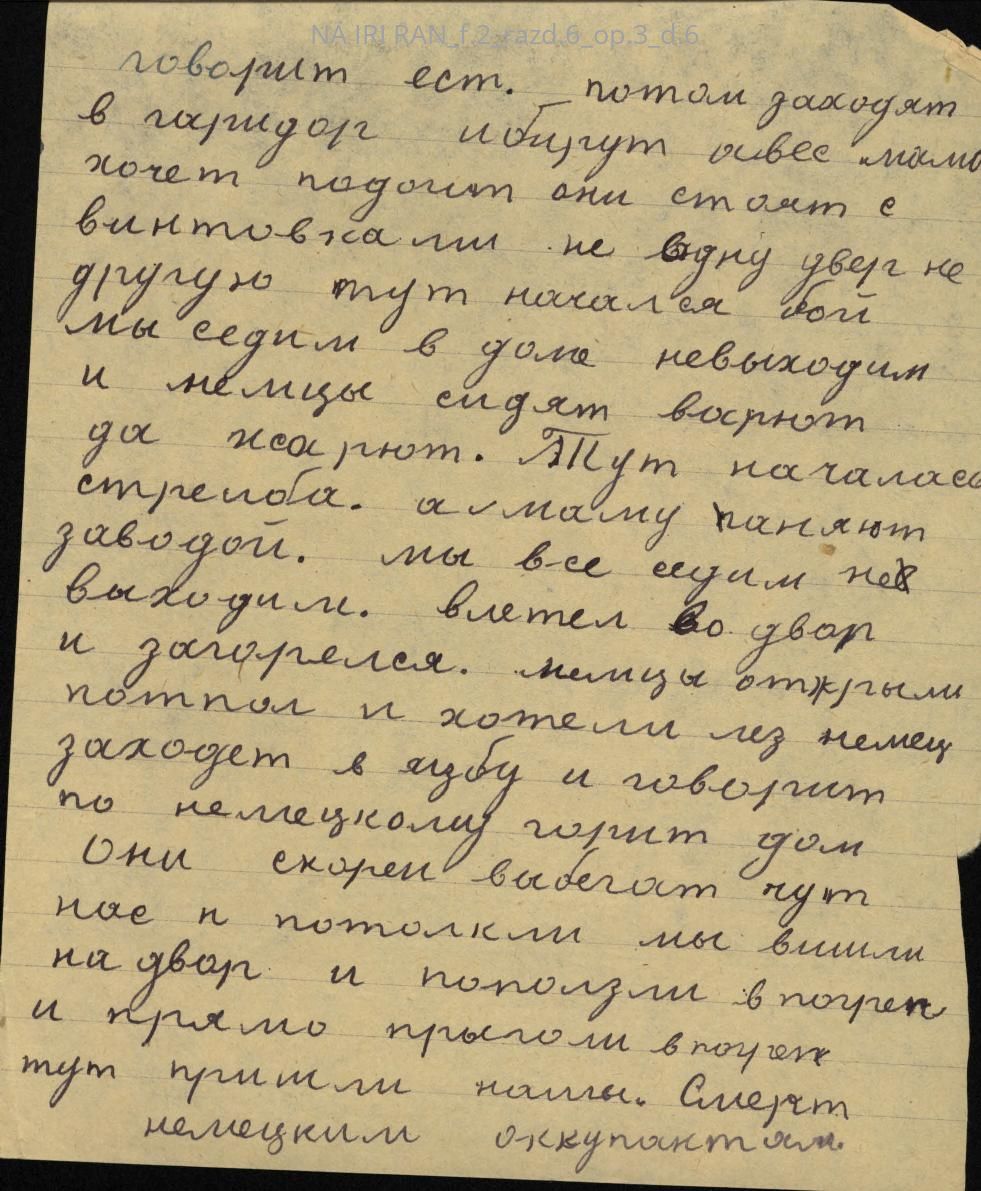 NA IRI RAN_f.2_razd.6_op.3_d.6
говорит ест. потом заходят
в гаридор и бирут авес мама
хочет подоит они стоят с
винтовками не водну двер не
другую тут начался бой
мы седим в доме невыходим
и немцы сидят варют
да жарют. Тут началась
стрелба. а маму ганяют
заводой. мы все седим не
выходим. влетел во двор
и загорелся. немцы открыли
потпол и хотели лез немец
заходет в избу и говорит
по немецкому горит дом
Они скореи выбегат чут
нас п потолкли мы вишли
на двор и поползли в погреп
и прямо прыгали в погреп
тут пришли нашы. Смерт
немецким оккупантам